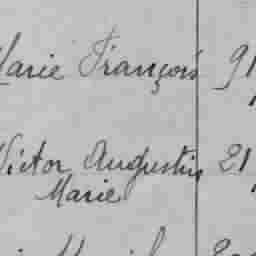 Marie François 91
Victor Augustin 21
Marie